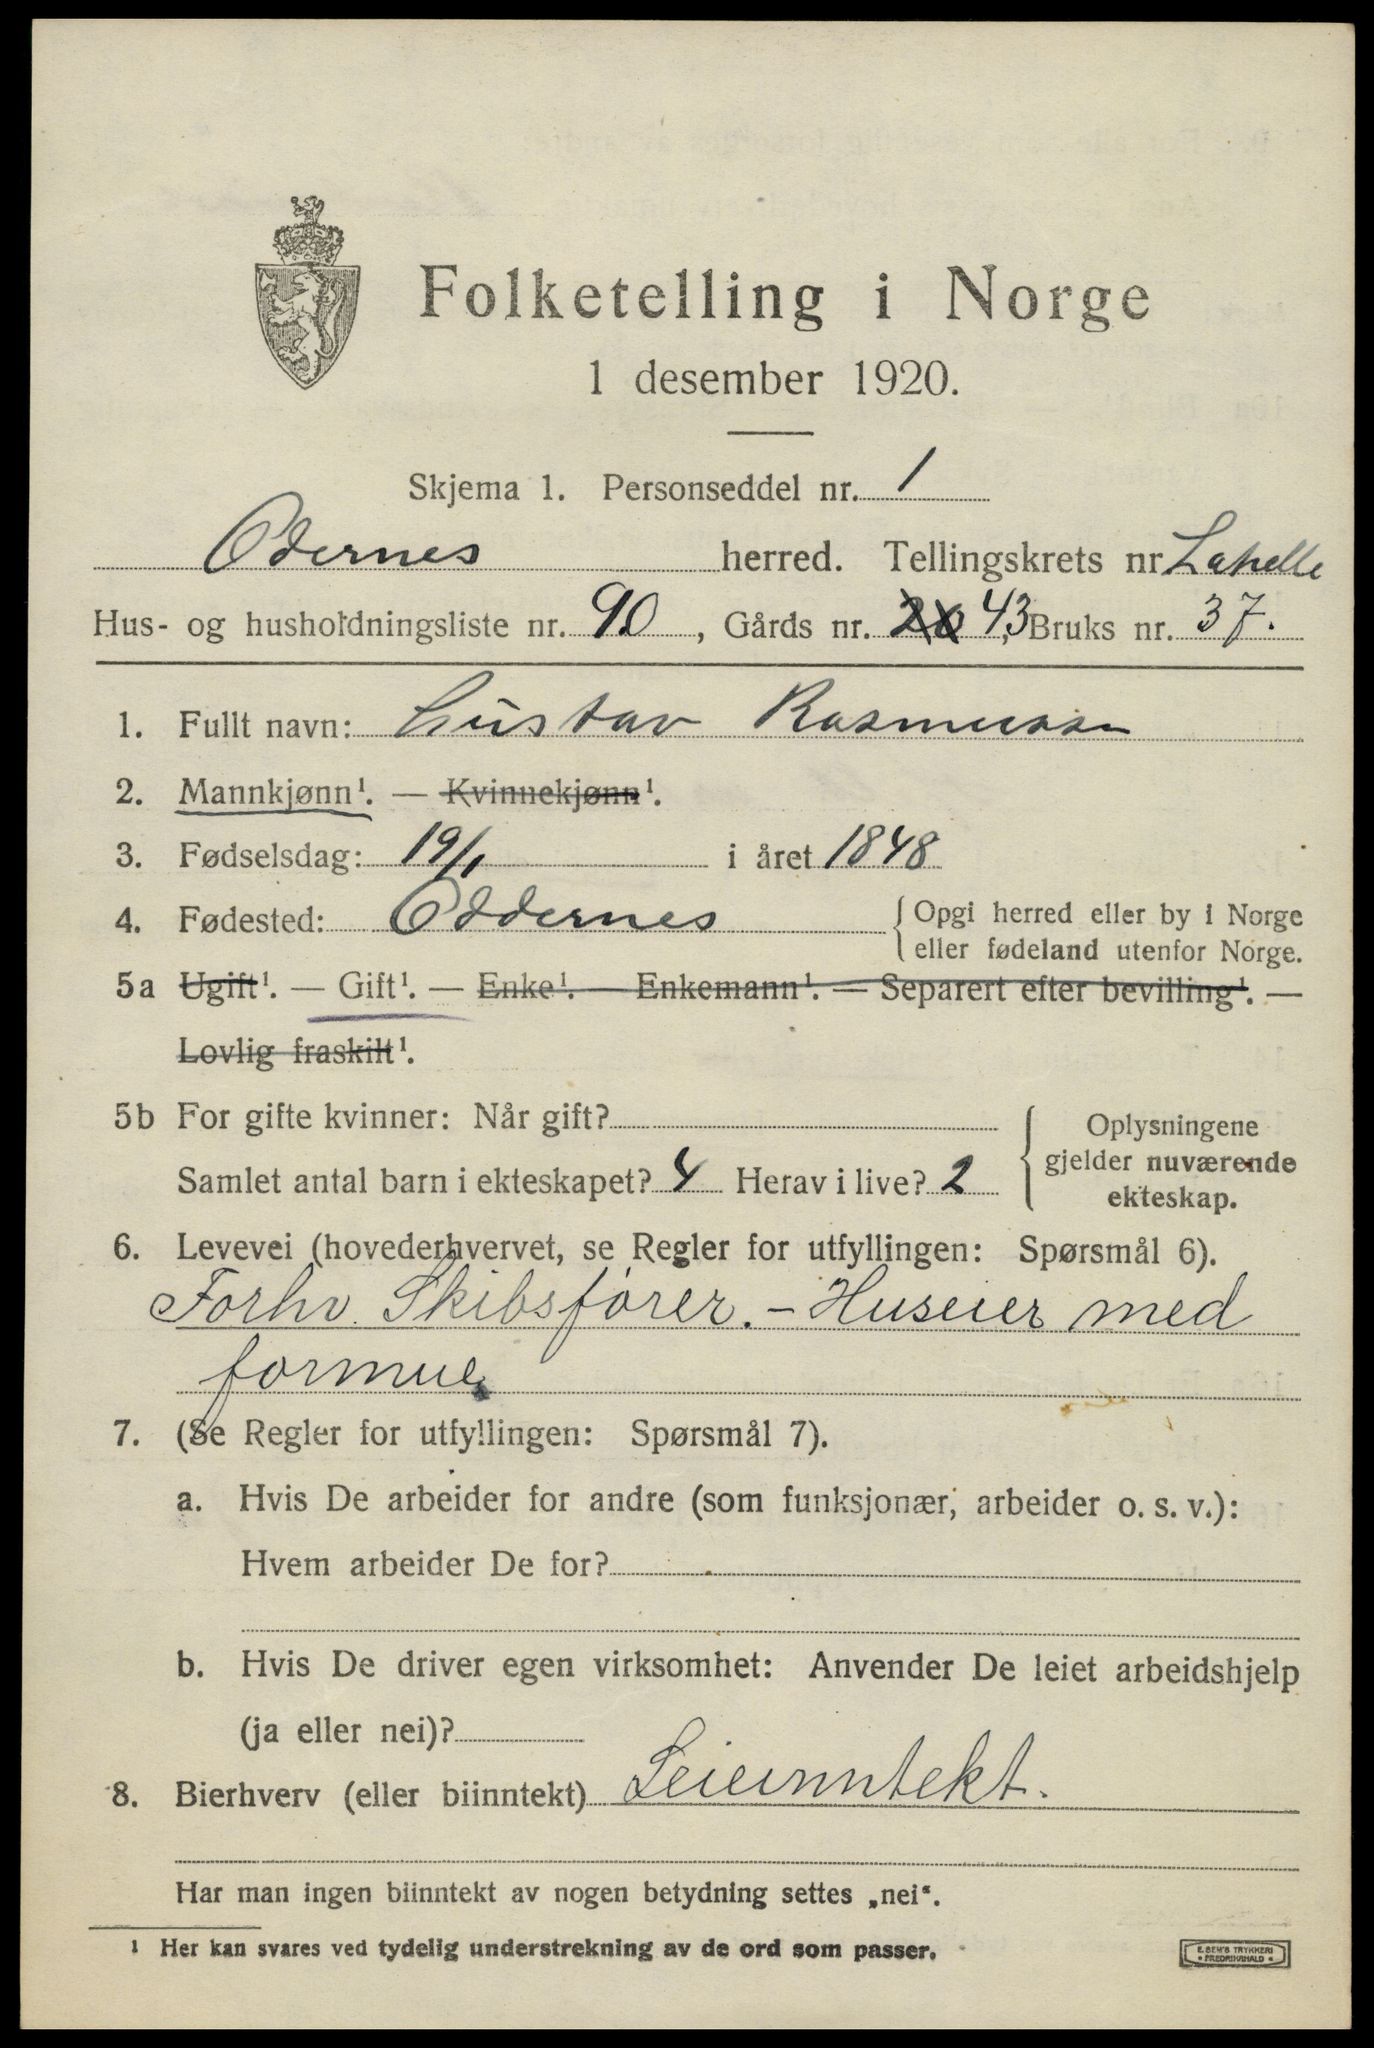 Folketelling i Norge
1 desember 1920.
Skjema 1. Personseddel nr. 1
Odernes herred. Tellingskrets nr Lahelle
Hus- og husholdningsliste nr. 90, Gårds nr. 20 43, Bruks nr. 37.
1. Fullt navn: Gustav Rasmussen
2. Mannkjønn¹. — Kvinnekjønn¹.
3. Fødselsdag: 19/1 i året 1848
4. Fødested: Oddernes { Opgi herred eller by i Norge
eller fødeland utenfor Norge.
5a Ugift¹. — Gift¹. — Enke¹. — Enkemann¹. — Separert efter bevilling¹. —
Lovlig fraskilt¹.
5b For gifte kvinner: Når gift?
Samlet antal barn i ekteskapet? 4 Herav i live? 2
{ Oplysningene
gjelder nuværende
ekteskap.
6. Levevei (hovederhvervet, se Regler for utfyllingen: Spørsmål 6).
Forhv. Skibsfører. - Huseier med
formue
7. (Se Regler for utfyllingen: Spørsmål 7).
a. Hvis De arbeider for andre (som funksjonær, arbeider o. s. v.):
Hvem arbeider De for?
b. Hvis De driver egen virksomhet: Anvender De leiet arbeidshjelp
(ja eller nei)?
8. Bierhverv (eller biinntekt) Leieinntekt.
Har man ingen biinntekt av nogen betydning settes „nei“.
¹ Her kan svares ved tydelig understrekning av de ord som passer.
E. SEM'S TRYKKERI
• FREDRIKSHALD •